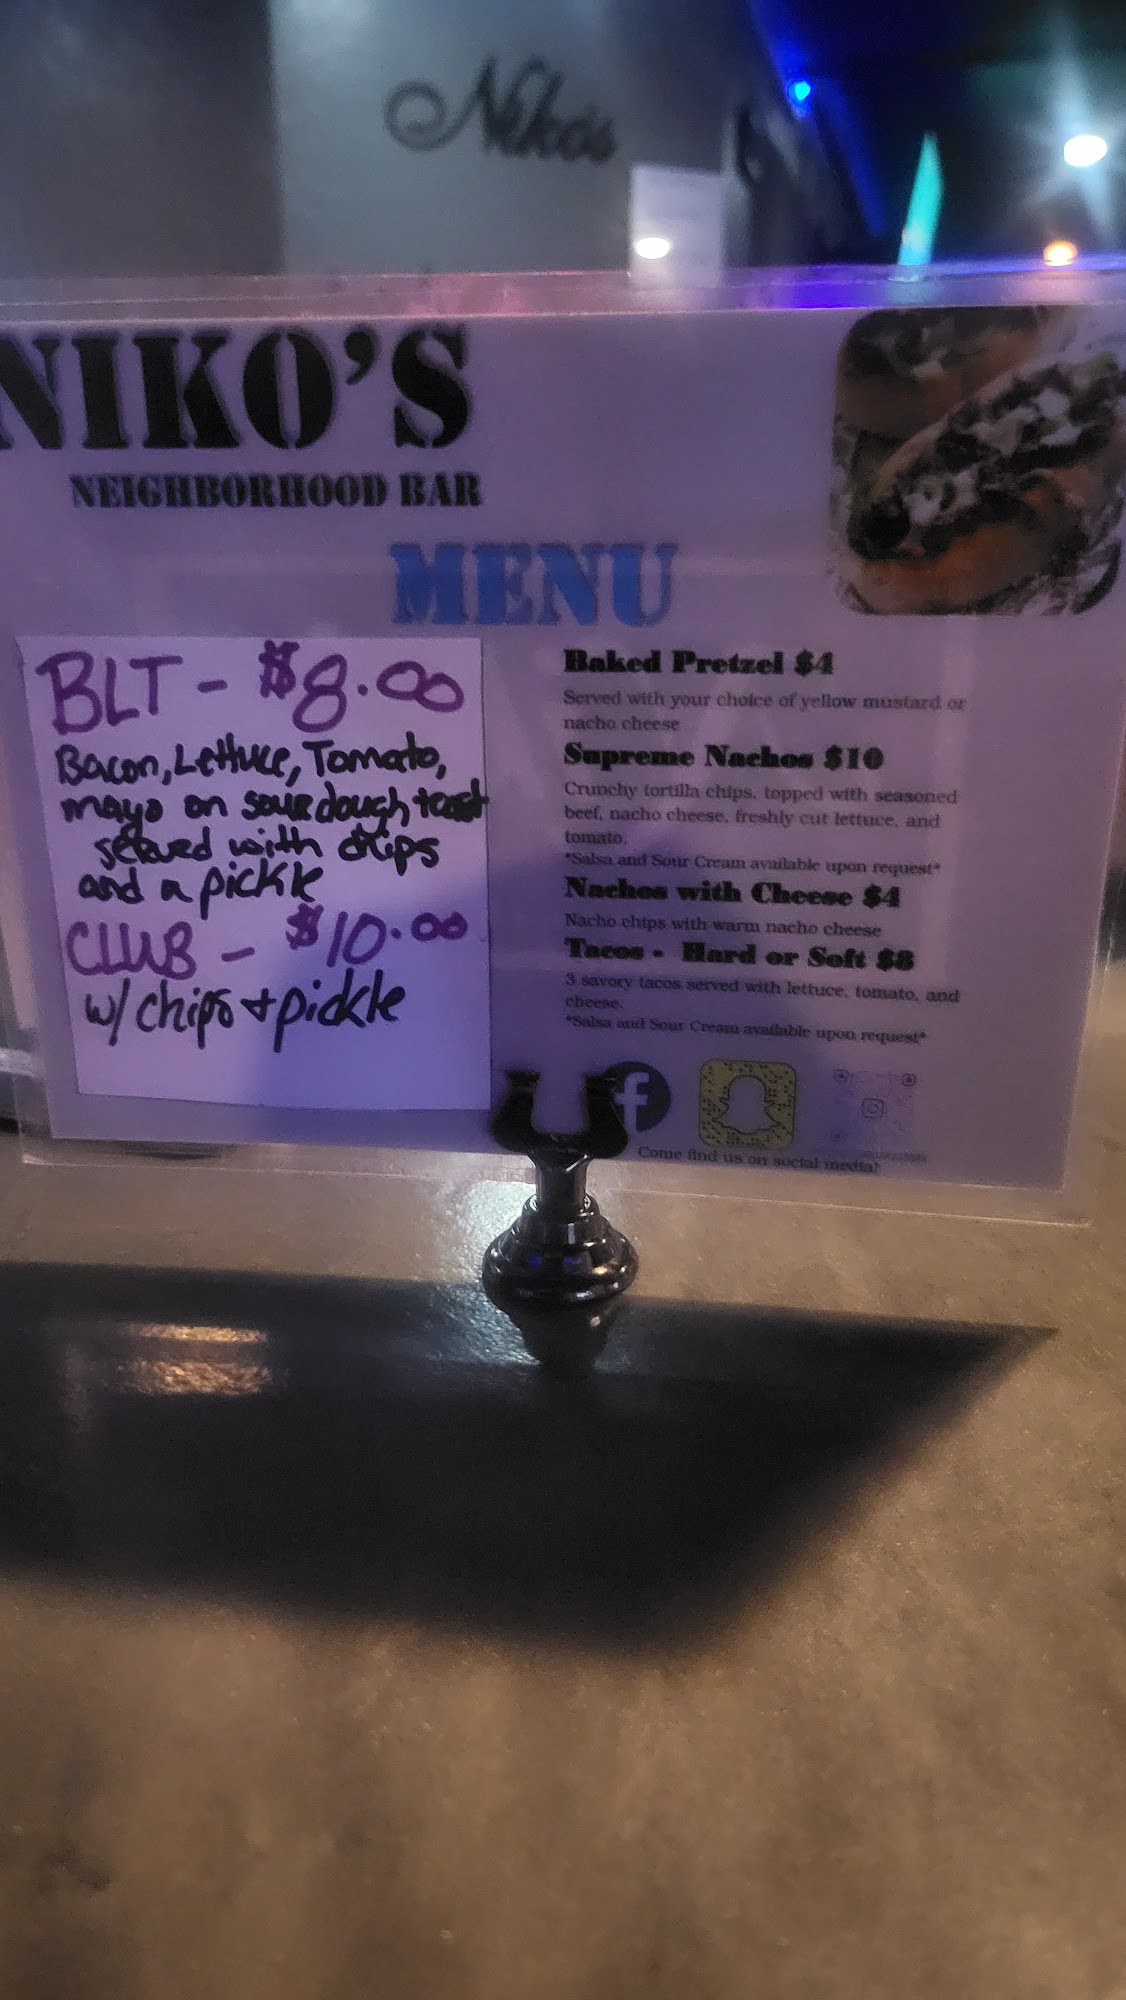 Niko's
NIKO'S
NEIGHBORHOOD BAR
MENU
BLT - $8.00
Bacon, Lettuce, Tomato,
mayo on sourdough toast
served with chips
and a pickle
CLUB - $10.00
w/ chips + pickle
Baked Pretzel $4
Served with your choice of yellow mustard or
nacho cheese
Supreme Nachos $10
Crunchy tortilla chips, topped with seasoned
beef, nacho cheese, freshly cut lettuce, and
tomato.
*Salsa and Sour Cream available upon request*
Nachos with Cheese $4
Nacho chips with warm nacho cheese
Tacos - Hard or Soft $8
3 savory tacos served with lettuce, tomato, and
cheese.
*Salsa and Sour Cream available upon request*
f
Come find us on social media!